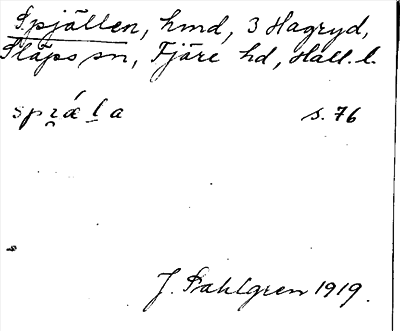 Spjällen, hmd, 3 Hagryd,
Släps sn, Fjäre hd, Hall. l.
s. 76
J. Sahlgren 1919.